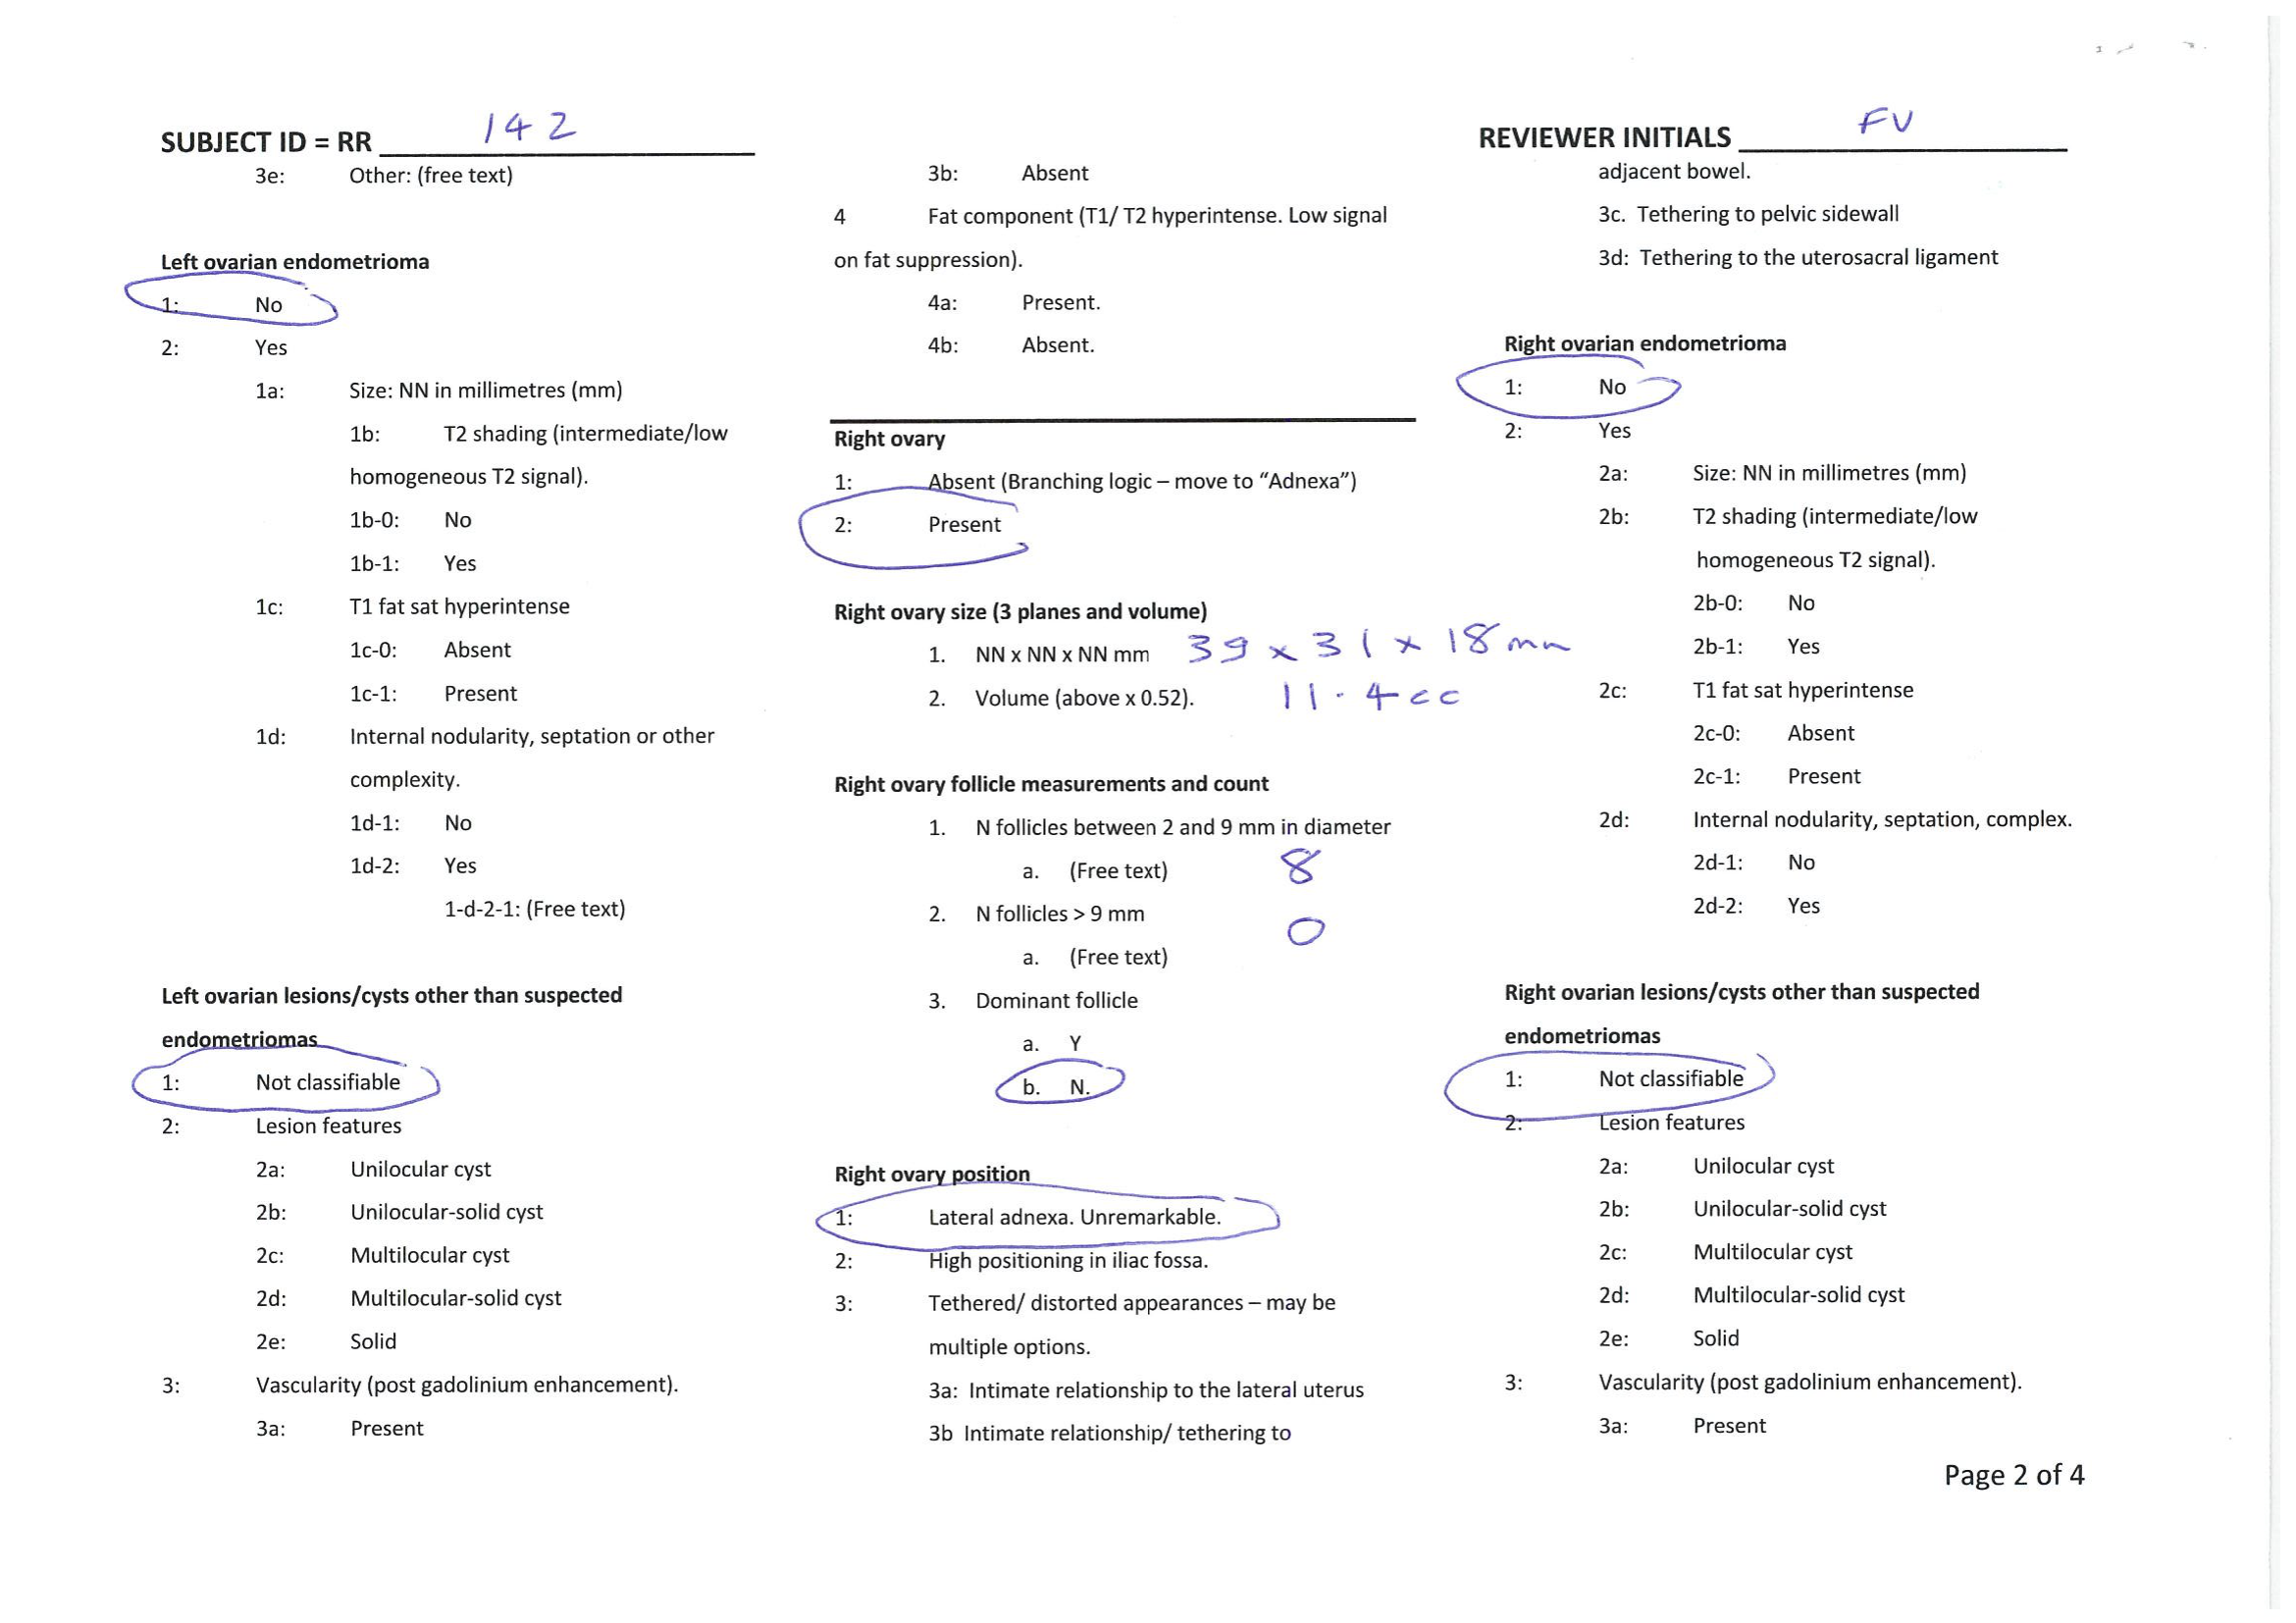 SUBJECT ID = RR 142
3e: Other: (free text)
Left ovarian endometrioma
1: No
2: Yes
1a: Size: NN in millimetres (mm)
1b: T2 shading (intermediate/low
homogeneous T2 signal).
1b-0: No
1b-1: Yes
1c: T1 fat sat hyperintense
1c-0: Absent
1c-1: Present
1d: Internal nodularity, septation or other
complexity.
1d-1: No
1d-2: Yes
1-d-2-1: (Free text)
Left ovarian lesions/cysts other than suspected
endometriomas
1: Not classifiable
2: Lesion features
2a: Unilocular cyst
2b: Unilocular-solid cyst
2c: Multilocular cyst
2d: Multilocular-solid cyst
2e: Solid
3: Vascularity (post gadolinium enhancement).
3a: Present
3b: Absent
4 Fat component (T1/ T2 hyperintense. Low signal
on fat suppression).
4a: Present.
4b: Absent.
Right ovary
1: Absent (Branching logic – move to “Adnexa”)
2: Present
Right ovary size (3 planes and volume)
1. NN x NN x NN mm 39 x 31 x 18 mm
2. Volume (above x 0.52). 11.4 cc
Right ovary follicle measurements and count
1. N follicles between 2 and 9 mm in diameter
a. (Free text) 8
2. N follicles > 9 mm
0
a. (Free text)
3. Dominant follicle
a. Y
b. N.
Right ovary position
1: Lateral adnexa. Unremarkable.
2: High positioning in iliac fossa.
3: Tethered/ distorted appearances – may be
multiple options.
3a: Intimate relationship to the lateral uterus
3b Intimate relationship/ tethering to
REVIEWER INITIALS FV
adjacent bowel.
3c. Tethering to pelvic sidewall
3d: Tethering to the uterosacral ligament
Right ovarian endometrioma
1: No
2: Yes
2a: Size: NN in millimetres (mm)
2b: T2 shading (intermediate/low
homogeneous T2 signal).
2b-0: No
2b-1: Yes
2c: T1 fat sat hyperintense
2c-0: Absent
2c-1: Present
2d: Internal nodularity, septation, complex.
2d-1: No
2d-2: Yes
Right ovarian lesions/cysts other than suspected
endometriomas
1: Not classifiable
2: Lesion features
2a: Unilocular cyst
2b: Unilocular-solid cyst
2c: Multilocular cyst
2d: Multilocular-solid cyst
2e: Solid
3: Vascularity (post gadolinium enhancement).
3a: Present
Page 2 of 4